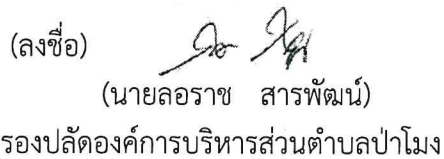 (ลงชื่อ)
(นายลอราช สารพัฒน์)
รองปลัดองค์การบริหารส่วนตำบลป่าโมง